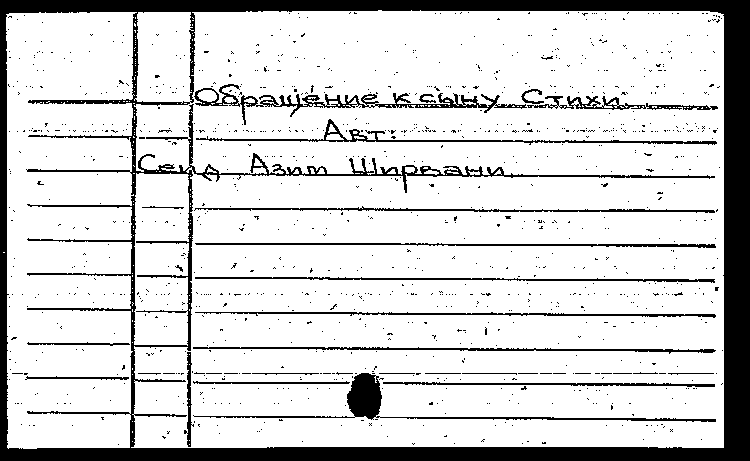 Обращение к сыну Стихи.
Авт:
Сеид Азим Ширвани.